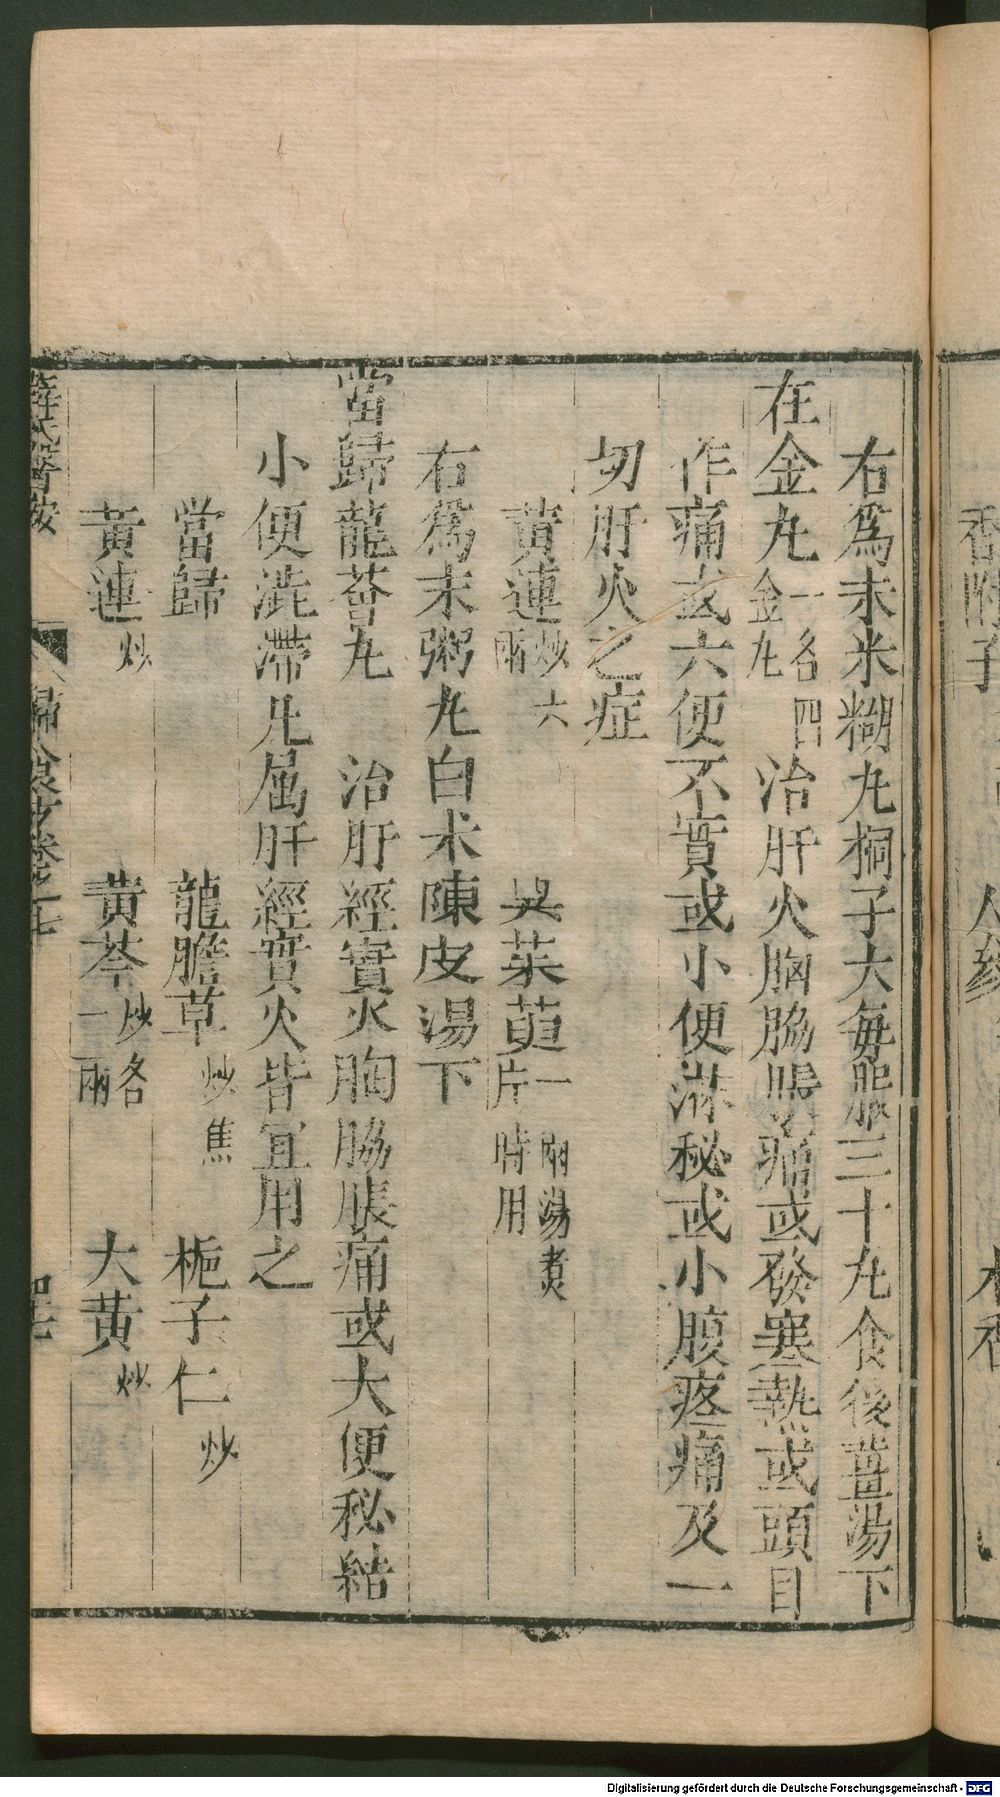 右爲末米糊丸桐子大每服三十丸食後薑湯下
在金丸一名四金丸 治肝火胸脇脹痛或發寒熱或頭目
作痛或大便不實或小便淋秘或小腹疼痛及一
切肝火之症
黃連炒六兩 吳茱萸一兩湯煮片時用
右爲末粥丸白术陳皮湯下
當歸龍薈丸 治肝經實火胸脇脹痛或大便秘結
小便澁滯凡屬肝經實火皆宜用之
當歸 龍膽草炒焦 梔子仁炒
黃連炒 黃芩炒各一兩 大黃炒
薛氏醫按 卷之七
香附子
木香
Digitalisierung gefördert durch die Deutsche Forschungsgemeinschaft - DFG